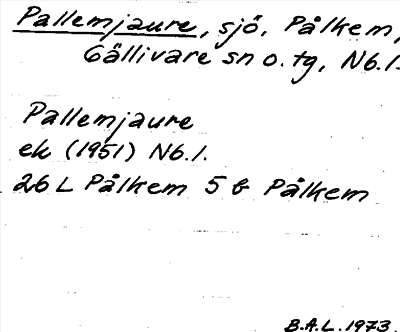 Pallemjaure, sjö, Pålkem,
Gällivare sn o. tg, Nb.l.
Pallemjaure
ek (1951) Nb.l.
26 L Pålkem 5 b Pålkem
B.A.L. 1973.